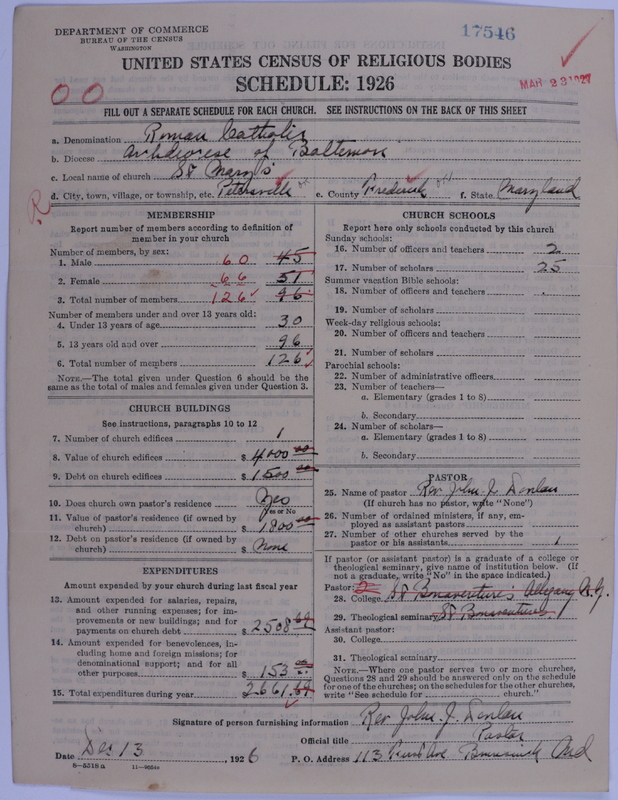 DEPARTMENT OF COMMERCE
BUREAU OF THE CENSUS
WASHINGTON
17546
UNITED STATES CENSUS OF RELIGIOUS BODIES
SCHEDULE: 1926
MAR 23 1927
00
FILL OUT A SEPARATE SCHEDULE FOR EACH CHURCH. SEE INSTRUCTIONS ON THE BACK OF THIS SHEET
a. Denomination Roman Catholic
b. Diocese Archdiocese of Baltimore
c. Local name of church St Mary's
d. City, town, village, or township, etc. Petersville e. County Frederick f. State Maryland
R
MEMBERSHIP
Report number of members according to definition of member in your church
Number of members, by sex:
1. Male 60 45
2. Female 66 51
3. Total number of members 126 96
Number of members under and over 13 years old:
4. Under 13 years of age 30
5. 13 years old and over 96
6. Total number of members 126
NOTE.—The total given under Question 6 should be the same as the total of males and females given under Question 3.
CHURCH BUILDINGS
See instructions, paragraphs 10 to 12
7. Number of church edifices 1
8. Value of church edifices $ 4000 00
9. Debt on church edifices $ 1500 00
10. Does church own pastor's residence Yes
Yes or No
11. Value of pastor's residence (if owned by church) $ 1800 00
12. Debt on pastor's residence (if owned by church) $ None
EXPENDITURES
Amount expended by your church during last fiscal year
13. Amount expended for salaries, repairs, and other running expenses; for improvements or new buildings; and for payments on church debt $ 2508
14. Amount expended for benevolences, including home and foreign missions; for denominational support; and for all other purposes $ 153
15. Total expenditures during year 2661
CHURCH SCHOOLS
Report here only schools conducted by this church
Sunday schools:
16. Number of officers and teachers 2
17. Number of scholars 25
Summer vacation Bible schools:
18. Number of officers and teachers
19. Number of scholars
Week-day religious schools:
20. Number of officers and teachers
21. Number of scholars
Parochial schools:
22. Number of administrative officers
23. Number of teachers—
a. Elementary (grades 1 to 8)
b. Secondary
24. Number of scholars—
a. Elementary (grades 1 to 8)
b. Secondary
PASTOR
25. Name of pastor Rev John J.
(If church has no pastor, write "None")
26. Number of ordained ministers, if any, employed as assistant pastors
27. Number of other churches served by the pastor or his assistants 1
If pastor (or assistant pastor) is a graduate of a college or theological seminary, give name of institution below. (If not a graduate, write "No" in the space indicated.)
Pastor: 2
28. College St Bonaventure's Allegany N.Y.
29. Theological seminary St Bonaventure's
Assistant pastor:
30. College
31. Theological seminary
NOTE.—Where one pastor serves two or more churches, Questions 28 and 29 should be answered only on the schedule for one of the churches; on the schedules for the other churches, write "See schedule for church."
Signature of person furnishing information Rev John J.
Official title Pastor
Date Dec 13, 1926 P. O. Address 113 Ave Brunswick Md
8—5518 a 11—9024